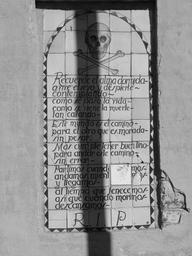 Recuerde el alma dormida
avive el seso y despierte
contemplando
como se pasa la vida
como se viene la muerte
tan callando
Este mundo es el camino
para el otro que es morada
sin pesar
Mas cumple tener buen tino
para andar este camino
sin errar
Partimos cuando nacemos
andamos mientras vivimos
y llegamos
al tiempo que fenecemos
asi que cuando morimos
descansamos
R I P